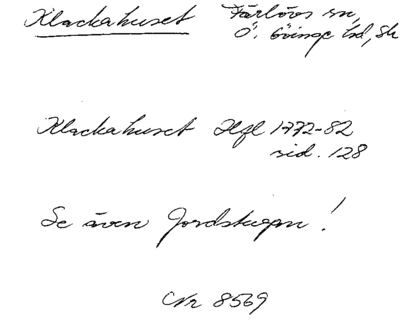 Klackahuset Färlövs sn,
Ö. Göinge hd, Sk
Klackahuset Hfl 1772-82
sid. 128
Se även Jordstugan!
Nr 8569